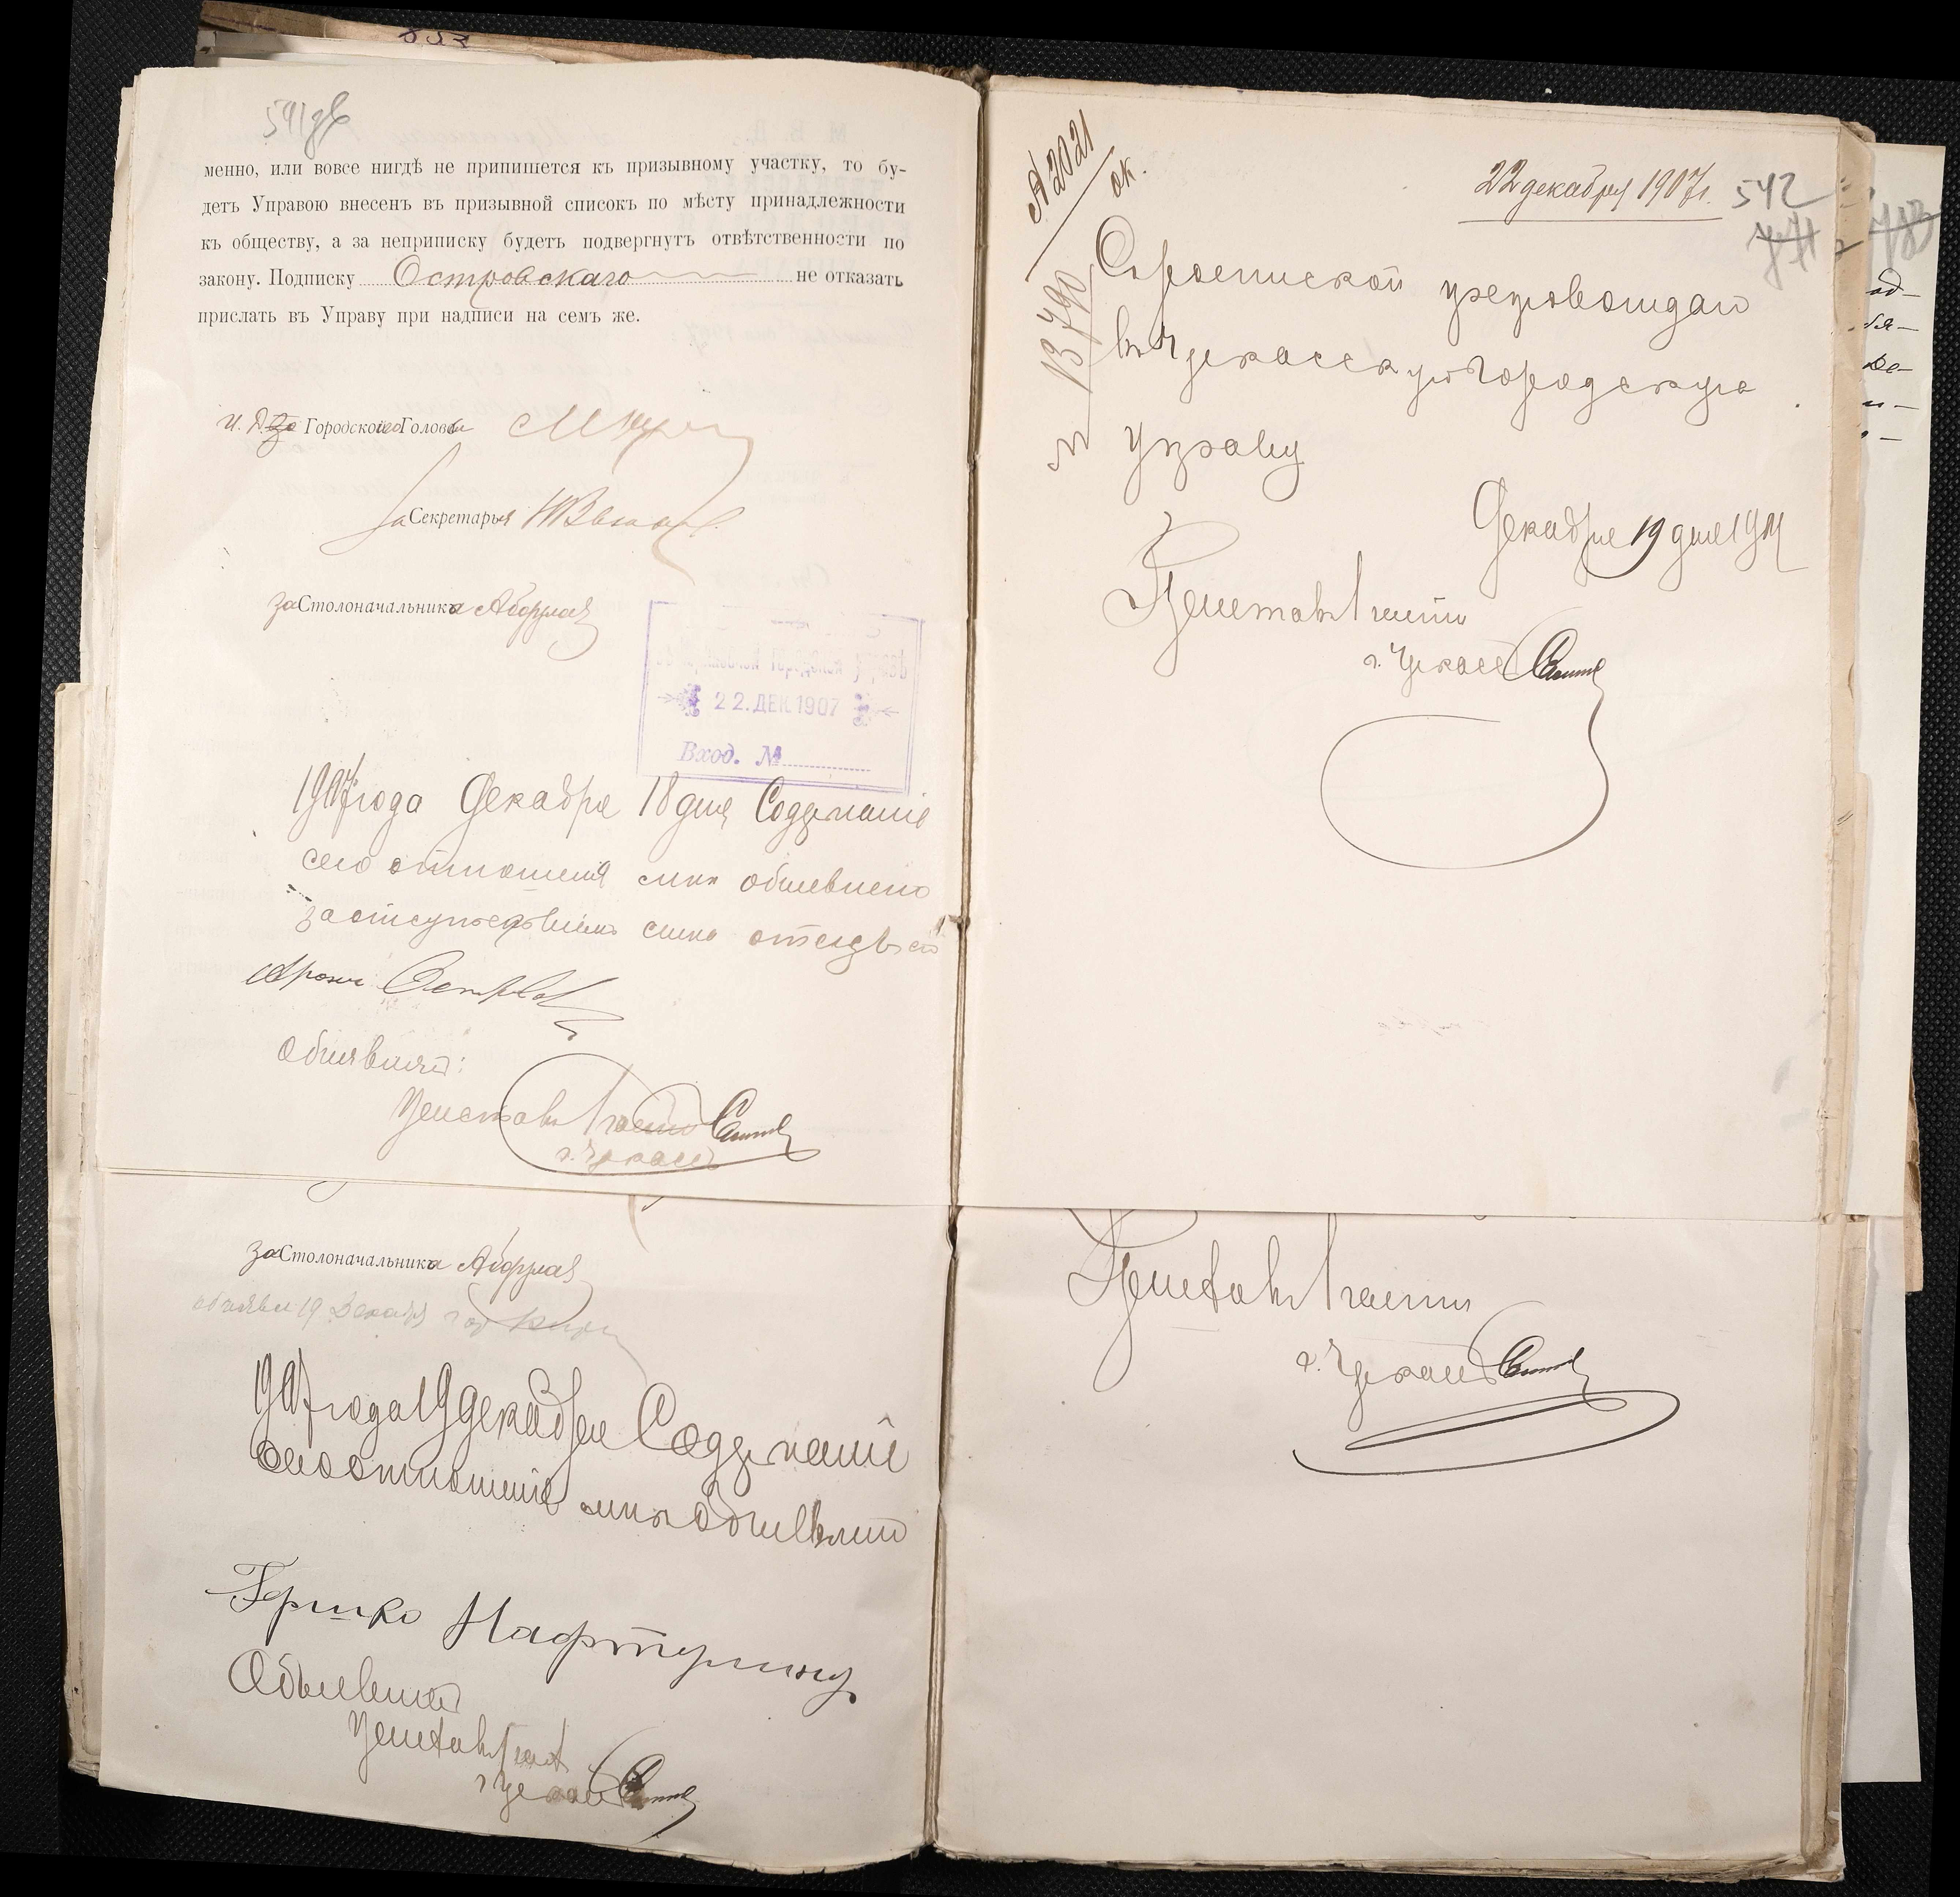 541об
менно, или вовсе нигдѣ не припишется къ призывному участку, то бу-
детъ Управою внесенъ въ призывной списокъ по мѣсту принадлежности
къ обществу, а за неприписку будетъ подвергнутъ отвѣтственности по
закону. Подписку Островскаго не отказать
прислать въ Управу при надписи на семъ же.
И. д. Городского Головы
за Секретаря
за Столоначальника
22. ДЕК. 1907
Вход. №
1907 года Декабря 18 дня Содержаніе
сего отношенія мнѣ объявлено
за отсутствіемъ сына отецъ его
Арон Островс
Объявилъ:
Приставъ 1 части
г. Черкассъ
за Столоначальника
19 Декабря
1907 года 19 декабря Содержаніе
сего отношенія мнѣ объявлено
Гершко Нафтулин
Объявилъ
Приставъ 1 част
г. Черкассъ
№ 2021
ок.
22 декабря 1907 г.
542
№ 13490
С роспиской препровождаю
въ Черкасскую Городскую
Управу
Декабря 19 дня 1907
Приставъ 1 части
г. Черкассъ
Приставъ 1 части
г. Черкассъ